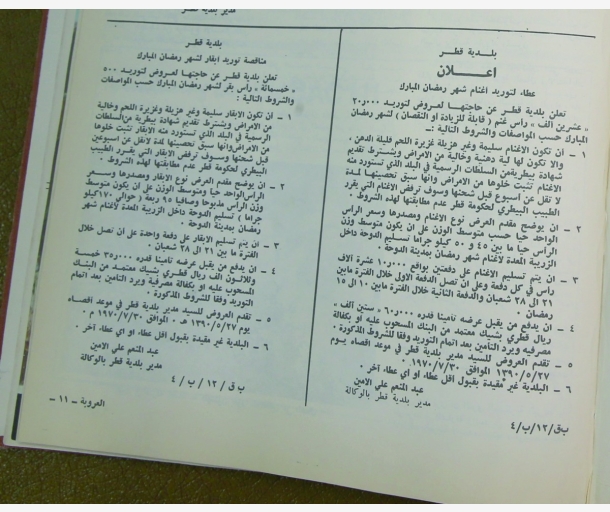 مدير بلدية قطر
بلدية قطر
اعلان
عطاء لتوريد اغنام شهر رمضان المبارك
تعلن بلدية قطر عن حاجتها لعروض لتوريد ٢٠٫٠٠٠
« عشرين الف » رأس غنم ( قابلة للزيادة أو النقصان ) لشهر رمضان
المبارك حسب المواصفات والشروط التالية :ـ
١ ـ ان تكون الاغنام سليمة وغير هزيلة غزيرة اللحم قليلة الدهن .
والا تكون لها لية دهنية وخالية من الامراض ويشترط تقديم
شهادة بيطرية من السلطات الرسمية في البلد الذي تستورد منه
الاغنام تثبت خلوها من الامراض وانها سبق تحصينها لمدة
لا تقل عن اسبوع قبل شحنها وسوف ترفض الاغنام التي يقرر
الطبيب البيطري لحكومة قطر عدم مطابقتها لهذه الشروط .
٢ ـ ان يوضح مقدم العرض نوع الاغنام ومصدرها وسعر الرأس
الواحد حيا حسب متوسط الوزن على ان يكون متوسط وزن
الرأس حيا ما بين ٤٥ و ٥٠ كيلو جراما تسليم الدوحة داخل
الزريبة المعدة لاغنام شهر رمضان بمدينة الدوحة .
٣ ـ ان يتم تسليم الاغنام على دفعتين بواقع ١٠٫٠٠٠ عشرة الاف
رأس في كل دفعة وعلى ان تصل الدفعة الاولى خلال الفترة مابين
٢١ الى ٢٨ شعبان والدفعة الثانية خلال الفترة مابين ١٠ الى ١٥
رمضان .
٤ ـ ان يدفع من يقبل عرضه تأمينا قدره ٦٠٫٠٠٠ « ستين الف »
ريال قطري بشيك معتمد من البنك المسحوب عليه او بكفالة
مصرفيه ويرد التأمين بعد اتمام التوريد وفقا للشروط المذكورة .
٥ ـ تقدم العروض للسيد مدير بلدية قطر في موعد اقصاه يوم
١٣٩٠/٥/٢٧ الموافق ١٩٧٠/٧/٣٠ .
٦ ـ البلدية غير مقيدة بقبول اقل عطاء او اي عطاء آخر .
عبد المنعم علي الامين
مدير بلدية قطر بالوكالة
ب ق/١٢/ب/٤
بلدية قطر
مناقصة توريد ابقار لشهر رمضان المبارك
تعلن بلدية قطر عن حاجتها لعروض لتوريد ٥٠٠
« خمسمائة » رأس بقر لشهر رمضان المبارك حسب المواصفات
والشروط التالية :
١ ـ ان تكون الابقار سليمة وغير هزيلة وغزيرة اللحم وخالية
من الامراض ويشترط تقديم شهادة بيطرية من السلطات
الرسمية في البلد الذي تستورد منه الابقار تثبت خلوها
من الامراض وانها سبق تحصينها لمدة لاتقل عن اسبوعين
قبل شحنها وسوف ترفض الابقار التي يقرر الطبيب
البيطري لحكومة قطر عدم مطابقتها لهذه الشروط .
٢ ـ ان يوضح مقدم العرض نوع الابقار ومصدرها وسعر
الرأس الواحد حيا ومتوسط الوزن على ان يكون متوسط
وزن الرأس مذبوحا وصافيا ٩٥ ربعة ( حوالي ١٧٠ كيلو
جراما ) تسليم الدوحة داخل الزريبة المعدة لاغنام شهر
رمضان بمدينة الدوحة .
٣ ـ ان يتم تسليم الابقار على دفعة واحدة على ان تصل خلال
الفترة ما بين ٢١ الى ٢٨ شعبان .
٤ ـ ان يدفع من يقبل عرضه تأمينا قدره ٣٥٫٠٠٠ خمسة
وثلاثون الف ريال قطري بشيك معتمد من البنك
المسحوب عليه او بكفالة مصرفية ويرد التأمين بعد اتمام
التوريد وفقا للشروط المذكورة .
٥ ـ تقدم العروض للسيد مدير بلدية قطر في موعد اقصاه
يوم ١٣٩٠/٥/٢٧ هـ . الموافق ١٩٧٠/٧/٣٠ م .
٦ ـ البلدية غير مقيدة بقبول اقل عطاء او اي عطاء آخر .
عبد المنعم علي الامين
مدير بلدية قطر بالوكالة
ب ق / ١٢ / ب / ٤
العروبة ـ ١١ ـ